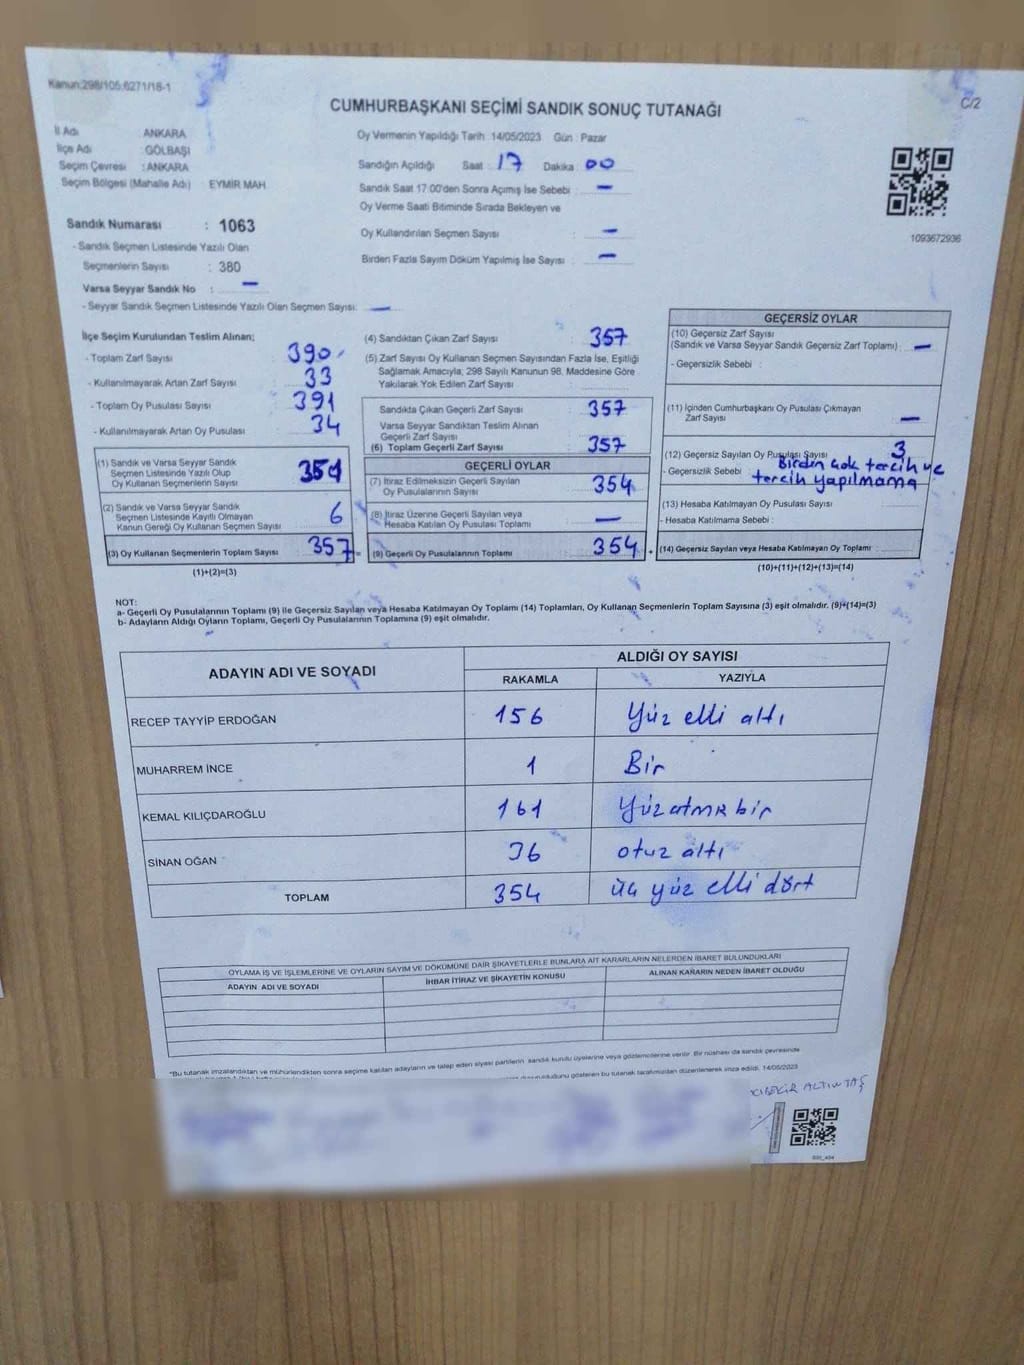 Kanun:298/105,6271/18-1
C/2
CUMHURBAŞKANI SEÇİMİ SANDIK SONUÇ TUTANAĞI
İl Adı ANKARA
İlçe Adı : GÖLBAŞI
Seçim Çevresi : ANKARA
Seçim Bölgesi (Mahalle Adı) EYMİR MAH
Sandık Numarası : 1063
- Sandık Seçmen Listesinde Yazılı Olan
Seçmenlerin Sayısı : 380
Varsa Seyyar Sandık No : -
- Seyyar Sandık Seçmen Listesinde Yazılı Olan Seçmen Sayısı: -
Oy Vermenin Yapıldığı Tarih 14/05/2023 Gün : Pazar
Sandığın Açıldığı Saat : 17 Dakika : 00
Sandık Saat 17:00'den Sonra Açımış İse Sebebi : -
Oy Verme Saati Bitiminde Sırada Bekleyen ve
Oy Kullandırılan Seçmen Sayısı : -
Birden Fazla Sayım Döküm Yapılmış İse Sayısı : -
1093672936
İlçe Seçim Kurulundan Teslim Alınan;
- Toplam Zarf Sayısı : 390
- Kullanılmayarak Artan Zarf Sayısı : 33
- Toplam Oy Pusulası Sayısı : 391
- Kullanılmayarak Artan Oy Pusulası : 34
(1) Sandık ve Varsa Seyyar Sandık
Seçmen Listesinde Yazılı Olup
Oy Kullanan Seçmenlerin Sayısı : 351
(2) Sandık ve Varsa Seyyar Sandık
Seçmen Listesinde Kayıtlı Olmayan
Kanun Gereği Oy Kullanan Seçmen Sayısı : 6
(3) Oy Kullanan Seçmenlerin Toplam Sayısı : 357 =
(1)+(2)=(3)
(4) Sandıktan Çıkan Zarf Sayısı : 357
(5) Zarf Sayısı Oy Kullanan Seçmen Sayısından Fazla İse, Eşitliği
Sağlamak Amacıyla; 298 Sayılı Kanunun 98. Maddesine Göre
Yakılarak Yok Edilen Zarf Sayısı :
Sandıkta Çıkan Geçerli Zarf Sayısı : 357
Varsa Seyyar Sandıktan Teslim Alınan
Geçerli Zarf Sayısı :
(6) Toplam Geçerli Zarf Sayısı : 357
GEÇERLİ OYLAR
(7) İtiraz Edilmeksizin Geçerli Sayılan
Oy Pusulalarının Sayısı : 354
(8) İtiraz Üzerine Geçerli Sayılan veya
Hesaba Katılan Oy Pusulası Toplamı : -
(9) Geçerli Oy Pusulalarının Toplamı : 354 +
GEÇERSİZ OYLAR
(10) Geçersiz Zarf Sayısı
(Sandık ve Varsa Seyyar Sandık Geçersiz Zarf Toplamı) : -
- Geçersizlik Sebebi :
(11) İçinden Cumhurbaşkanı Oy Pusulası Çıkmayan
Zarf Sayısı : -
(12) Geçersiz Sayılan Oy Pusulası Sayısı : 3
- Geçersizlik Sebebi : Birden çok tercih ve
tercih yapılmama
(13) Hesaba Katılmayan Oy Pusulası Sayısı :
- Hesaba Katılmama Sebebi :
(14) Geçersiz Sayılan veya Hesaba Katılmayan Oy Toplamı :
(10)+(11)+(12)+(13)=(14)
NOT:
a- Geçerli Oy Pusulalarının Toplamı (9) ile Geçersiz Sayılan veya Hesaba Katılmayan Oy Toplamı (14) Toplamları, Oy Kullanan Seçmenlerin Toplam Sayısına (3) eşit olmalıdır. (9)+(14)=(3)
b- Adayların Aldığı Oyların Toplamı, Geçerli Oy Pusulalarının Toplamına (9) eşit olmalıdır.
ADAYIN ADI VE SOYADI
ALDIĞI OY SAYISI
RAKAMLA YAZIYLA
RECEP TAYYİP ERDOĞAN 156 Yüz elli altı
MUHARREM İNCE 1 Bir
KEMAL KILIÇDAROĞLU 161 Yüzatmıs bir
SİNAN OĞAN 36 otuz altı
TOPLAM 354 üç yüz elli dört
OYLAMA İŞ VE İŞLEMLERİNE VE OYLARIN SAYIM VE DÖKÜMÜNE DAİR ŞİKAYETLERLE BUNLARA AİT KARARLARIN NELERDEN İBARET BULUNDUKLARI
ADAYIN ADI VE SOYADI İHBAR İTİRAZ VE ŞİKAYETİN KONUSU ALINAN KARARIN NEDEN İBARET OLDUĞU
"Bu tutanak imzalandıktan ve mühürlendikten sonra seçime katılan adayların ve talep eden siyasi partilerin sandık kurulu üyelerine veya gözlemcilerine verilir. Bir nüshası da sandık çevresinde
gösteren bu tutanak tarafımızdan düzenlenerek imza edildi. 14/05/2023
ALTINTAŞ